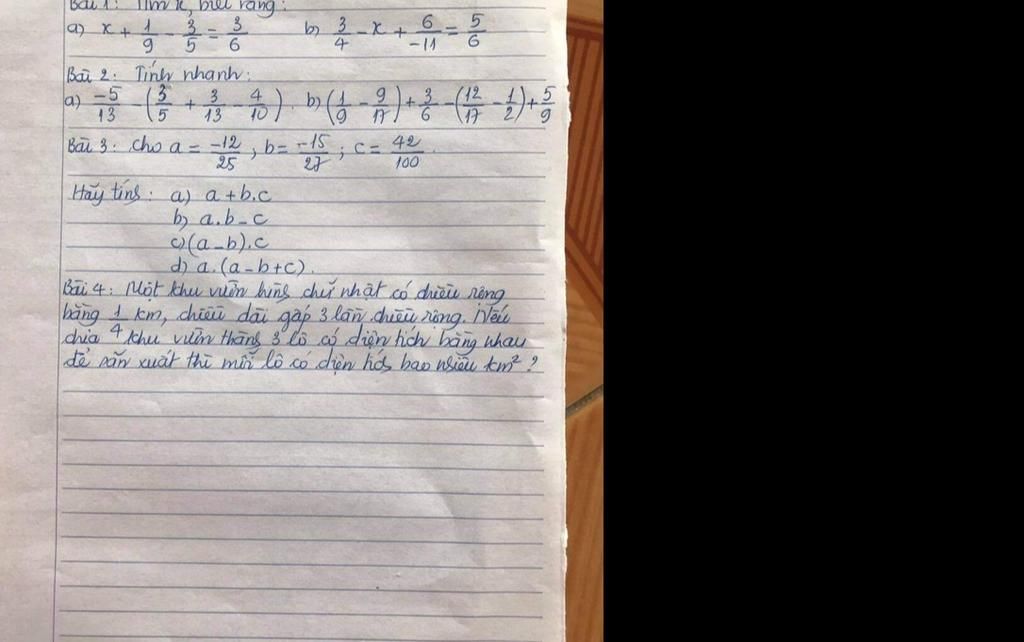 Bài 1: Tìm x, biết rằng:
a) x + 1/9 - 3/5 = 3/6 b) 3/4 - x + 6/-11 = 5/6
Bài 2: Tính nhanh:
a) -5/13 - (3/5 + 3/13 - 4/10). b) (1/9 - 9/17) + 3/6 - (12/17 - 1/2) + 5/9
Bài 3: Cho a = -12/25, b = -15/27; c = 42/100.
Hãy tính: a) a + b.c
b) a.b - c
c) (a - b).c
d) a.(a - b + c).
Bài 4: Một khu vườn hình chữ nhật có chiều rộng
bằng 1/4 km, chiều dài gấp 3 lần chiều rộng. Nếu
chia khu vườn thành 3 lô có diện tích bằng nhau
để sản xuất thì mỗi lô có diện tích bao nhiêu km²?